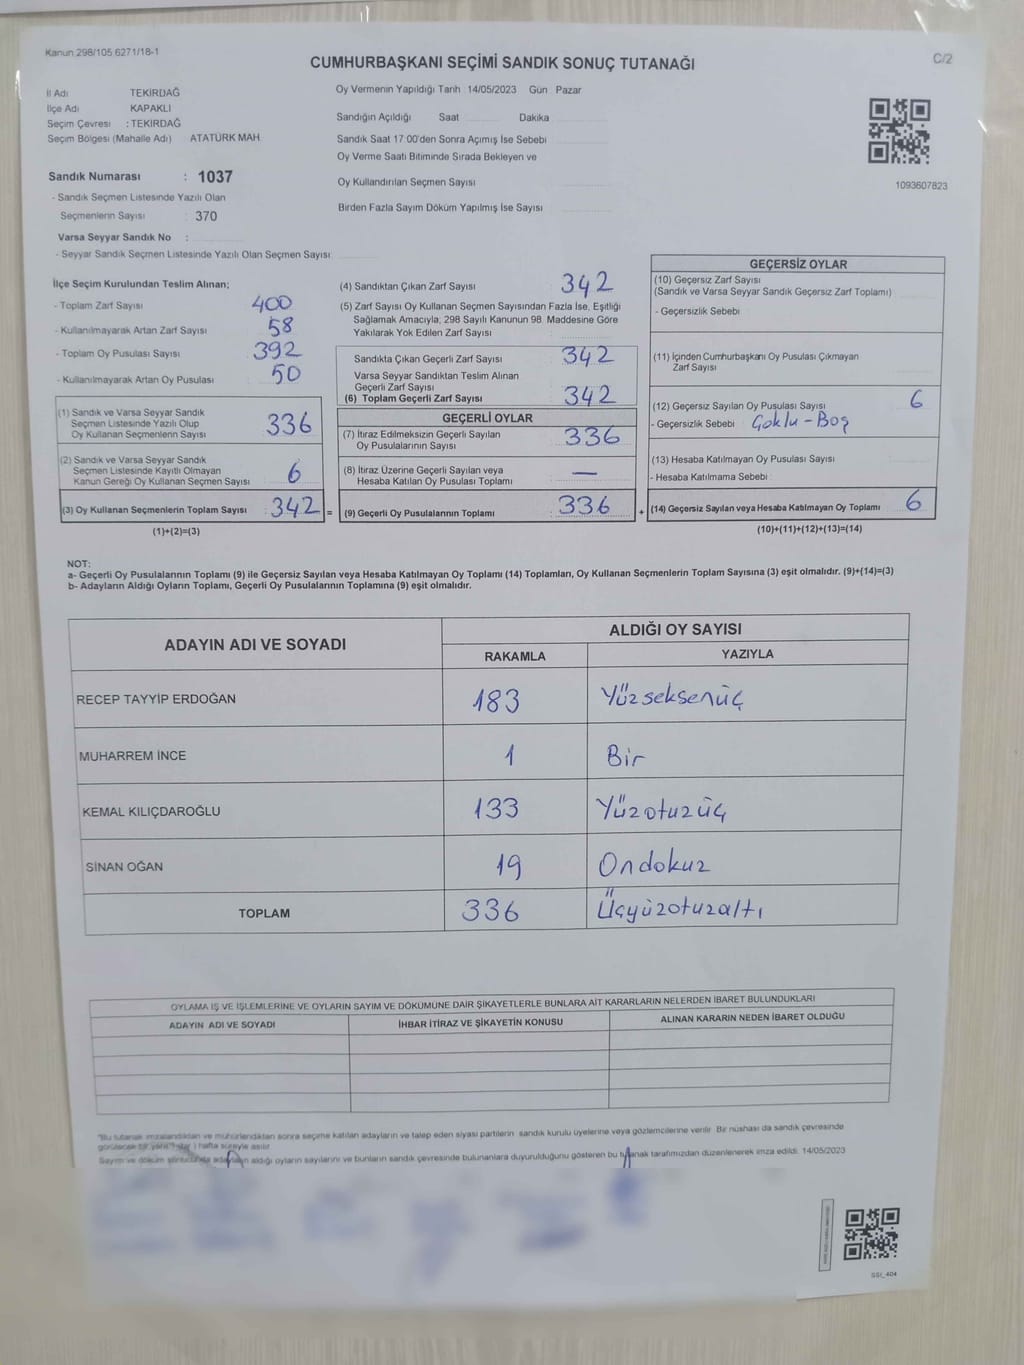 Kanun 298/105 6271/18-1
C/2
CUMHURBAŞKANI SEÇİMİ SANDIK SONUÇ TUTANAĞI
İl Adı TEKİRDAĞ
İlçe Adı KAPAKLI
Seçim Çevresi : TEKİRDAĞ
Seçim Bölgesi (Mahalle Adı) ATATÜRK MAH.
Sandık Numarası : 1037
- Sandık Seçmen Listesinde Yazılı Olan
Seçmenlerin Sayısı 370
Varsa Seyyar Sandık No :
- Seyyar Sandık Seçmen Listesinde Yazılı Olan Seçmen Sayısı
Oy Vermenin Yapıldığı Tarih 14/05/2023 Gün Pazar
Sandığın Açıldığı Saat Dakika
Sandık Saat 17 00'den Sonra Açımış İse Sebebi
Oy Verme Saati Bitiminde Sırada Bekleyen ve
Oy Kullandırılan Seçmen Sayısı
Birden Fazla Sayım Döküm Yapılmış İse Sayısı
1093607823
İlçe Seçim Kurulundan Teslim Alınan;
- Toplam Zarf Sayısı 400
- Kullanılmayarak Artan Zarf Sayısı 58
- Toplam Oy Pusulası Sayısı 392
- Kullanılmayarak Artan Oy Pusulası 50
(1) Sandık ve Varsa Seyyar Sandık
Seçmen Listesinde Yazılı Olup
Oy Kullanan Seçmenlerin Sayısı 336
(2) Sandık ve Varsa Seyyar Sandık
Seçmen Listesinde Kayıtlı Olmayan
Kanun Gereği Oy Kullanan Seçmen Sayısı 6
(3) Oy Kullanan Seçmenlerin Toplam Sayısı 342 =
(1)+(2)=(3)
(4) Sandıktan Çıkan Zarf Sayısı 342
(5) Zarf Sayısı Oy Kullanan Seçmen Sayısından Fazla İse, Eşitliği
Sağlamak Amacıyla, 298 Sayılı Kanunun 98. Maddesine Göre
Yakılarak Yok Edilen Zarf Sayısı
Sandıkta Çıkan Geçerli Zarf Sayısı 342
Varsa Seyyar Sandıktan Teslim Alınan
Geçerli Zarf Sayısı
(6) Toplam Geçerli Zarf Sayısı 342
GEÇERLİ OYLAR
(7) İtiraz Edilmeksizin Geçerli Sayılan
Oy Pusulalarının Sayısı 336
(8) İtiraz Üzerine Geçerli Sayılan veya
Hesaba Katılan Oy Pusulası Toplamı —
(9) Geçerli Oy Pusulalarının Toplamı 336 +
GEÇERSİZ OYLAR
(10) Geçersiz Zarf Sayısı
(Sandık ve Varsa Seyyar Sandık Geçersiz Zarf Toplamı)
- Geçersizlik Sebebi
(11) İçinden Cumhurbaşkanı Oy Pusulası Çıkmayan
Zarf Sayısı
(12) Geçersiz Sayılan Oy Pusulası Sayısı 6
- Geçersizlik Sebebi Çoklu - Boş
(13) Hesaba Katılmayan Oy Pusulası Sayısı
- Hesaba Katılmama Sebebi
(14) Geçersiz Sayılan veya Hesaba Katılmayan Oy Toplamı 6
(10)+(11)+(12)+(13)=(14)
NOT:
a- Geçerli Oy Pusulalarının Toplamı (9) ile Geçersiz Sayılan veya Hesaba Katılmayan Oy Toplamı (14) Toplamları, Oy Kullanan Seçmenlerin Toplam Sayısına (3) eşit olmalıdır. (9)+(14)=(3)
b- Adayların Aldığı Oyların Toplamı, Geçerli Oy Pusulalarının Toplamına (9) eşit olmalıdır.
ADAYIN ADI VE SOYADI
ALDIĞI OY SAYISI
RAKAMLA YAZIYLA
RECEP TAYYİP ERDOĞAN 183 Yüzseksenüç
MUHARREM İNCE 1 Bir
KEMAL KILIÇDAROĞLU 133 Yüzotuzüç
SİNAN OĞAN 19 Ondokuz
TOPLAM 336 Üçyüzotuzaltı
OYLAMA İŞ VE İŞLEMLERİNE VE OYLARIN SAYIM VE DÖKÜMÜNE DAİR ŞİKAYETLERLE BUNLARA AİT KARARLARIN NELERDEN İBARET BULUNDUKLARI
ADAYIN ADI VE SOYADI İHBAR İTİRAZ VE ŞİKAYETİN KONUSU ALINAN KARARIN NEDEN İBARET OLDUĞU
"Bu tutanak imzalandıktan ve mühürlendikten sonra seçime katılan adayların ve talep eden siyasi partilerin sandık kurulu üyelerine veya gözlemcilerine verilir. Bir nüshası da sandık çevresinde
görülecek bir yere 1 hafta süreyle asılır
Sayım ve döküm sonucunda adayların aldığı oyların sayılarını ve bunların sandık çevresinde bulunanlara duyurulduğunu gösteren bu tutanak tarafımızdan düzenlenerek imza edildi. 14/05/2023
SSI_404